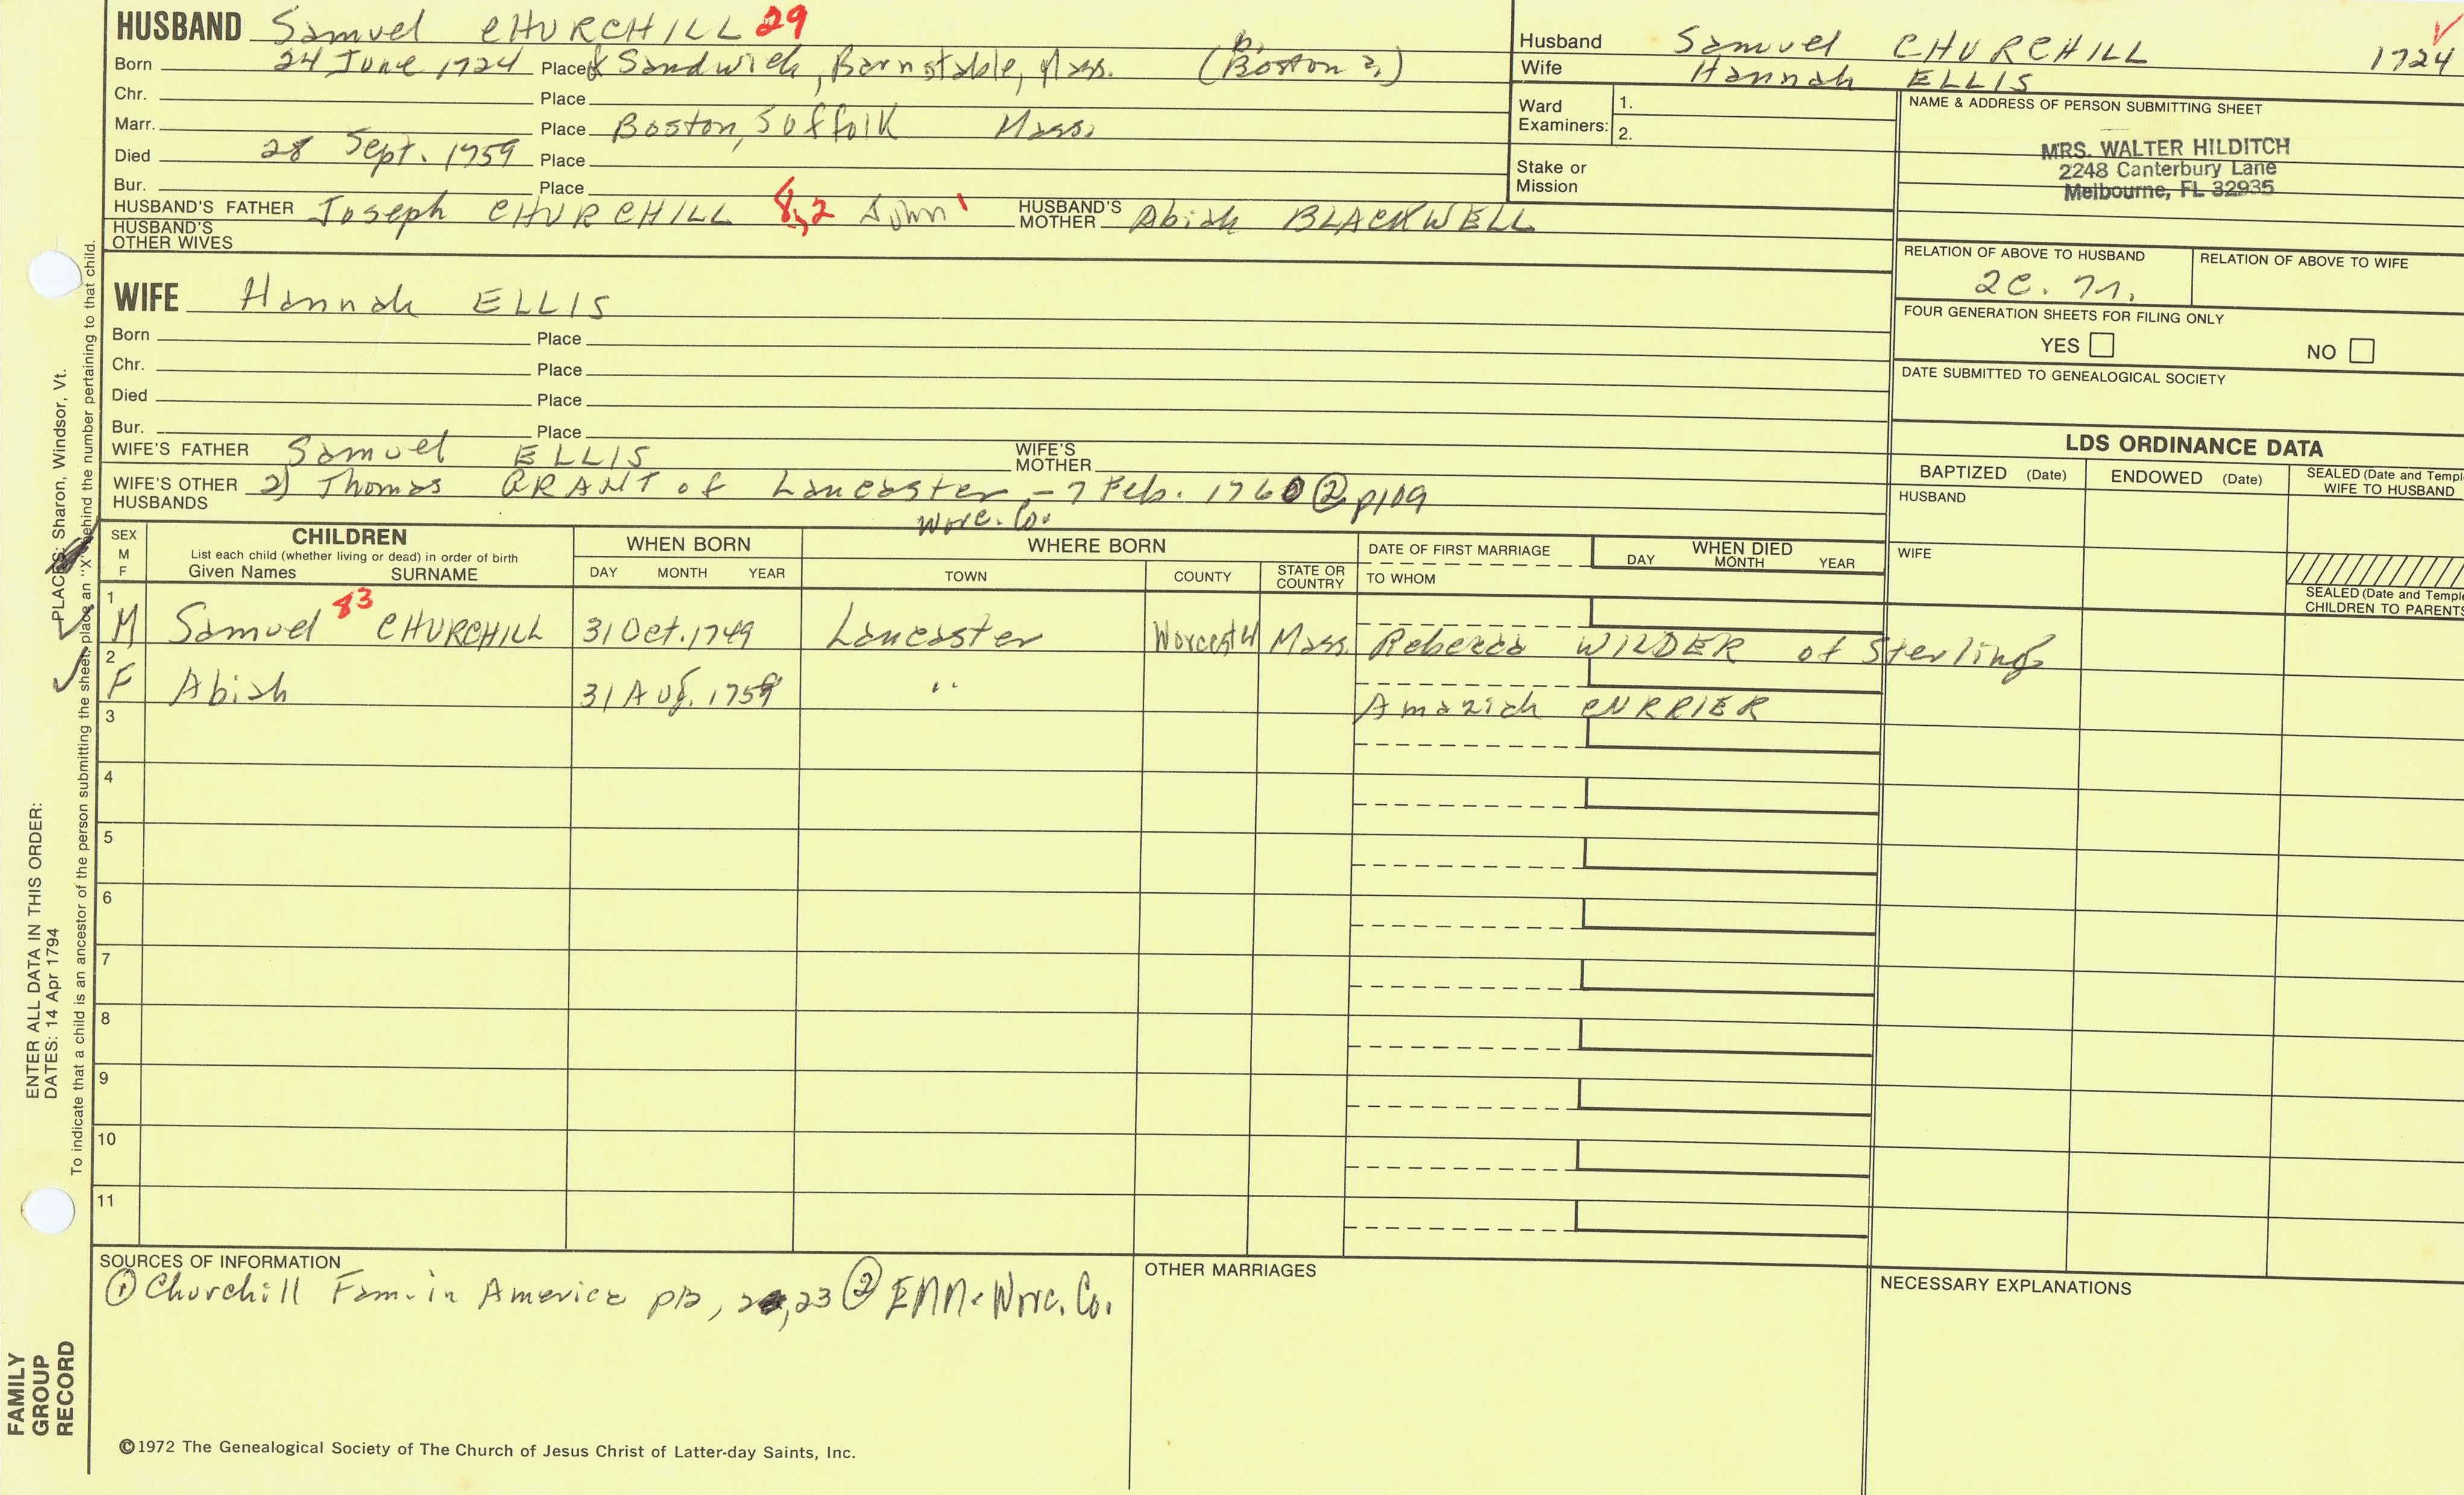 HUSBAND Samuel CHURCHILL 29
Born 24 June 1724 Place Sandwich, Barnstable, Mass. (Boston
Chr. Place
Marr. Place Boston, Suffolk Mass.
Died 28 Sept. 1759 Place
Bur. Place
HUSBAND'S FATHER Joseph CHURCHILL 8,2 John 1 HUSBAND'S MOTHER Abiah BLACKWELL
HUSBAND'S OTHER WIVES
Husband Samuel CHURCHILL 1724
Wife Hannah ELLIS
Ward Examiners: 1.
2.
Stake or Mission
NAME & ADDRESS OF PERSON SUBMITTING SHEET
MRS. WALTER HILDITCH
2248 Canterbury Lane
Melbourne, FL 32935
RELATION OF ABOVE TO HUSBAND RELATION OF ABOVE TO WIFE
2C.
FOUR GENERATION SHEETS FOR FILING ONLY
YES NO
DATE SUBMITTED TO GENEALOGICAL SOCIETY
WIFE Hannah ELLIS
Born Place
Chr. Place
Died Place
Bur. Place
WIFE'S FATHER Samuel ELLIS WIFE'S MOTHER
WIFE'S OTHER HUSBANDS 2) Thomas GRANT of Lancaster - 7 Feb. 1760 ② p109
Worc. Co.
LDS ORDINANCE DATA
BAPTIZED (Date) ENDOWED (Date) SEALED (Date and Templ
WIFE TO HUSBAND
HUSBAND
WIFE
SEALED (Date and Temple
CHILDREN TO PARENTS
SEX M F CHILDREN WHEN BORN WHERE BORN DATE OF FIRST MARRIAGE WHEN DIED
List each child (whether living or dead) in order of birth
Given Names SURNAME DAY MONTH YEAR TOWN COUNTY STATE OR COUNTRY TO WHOM DAY MONTH YEAR
1 M Samuel 83 CHURCHILL 31 Oct. 1749 Lancaster Worcester Mass. Rebecca WILDER of Sterling
2 F Abiah 31 Aug. 1759 " Amaziah CURRIER
3
4
5
6
7
8
9
10
11
SOURCES OF INFORMATION
① Churchill Fam. in America ,23 ② Worc. Co.
OTHER MARRIAGES
NECESSARY EXPLANATIONS
©1972 The Genealogical Society of The Church of Jesus Christ of Latter-day Saints, Inc.
FAMILY
GROUP
RECORD
ENTER ALL DATA IN THIS ORDER:
DATES: 14 Apr 1794
PLACES: Sharon, Windsor, Vt.
To indicate that a child is an ancestor of the person submitting the sheet, place an "X" behind the number pertaining to that child.